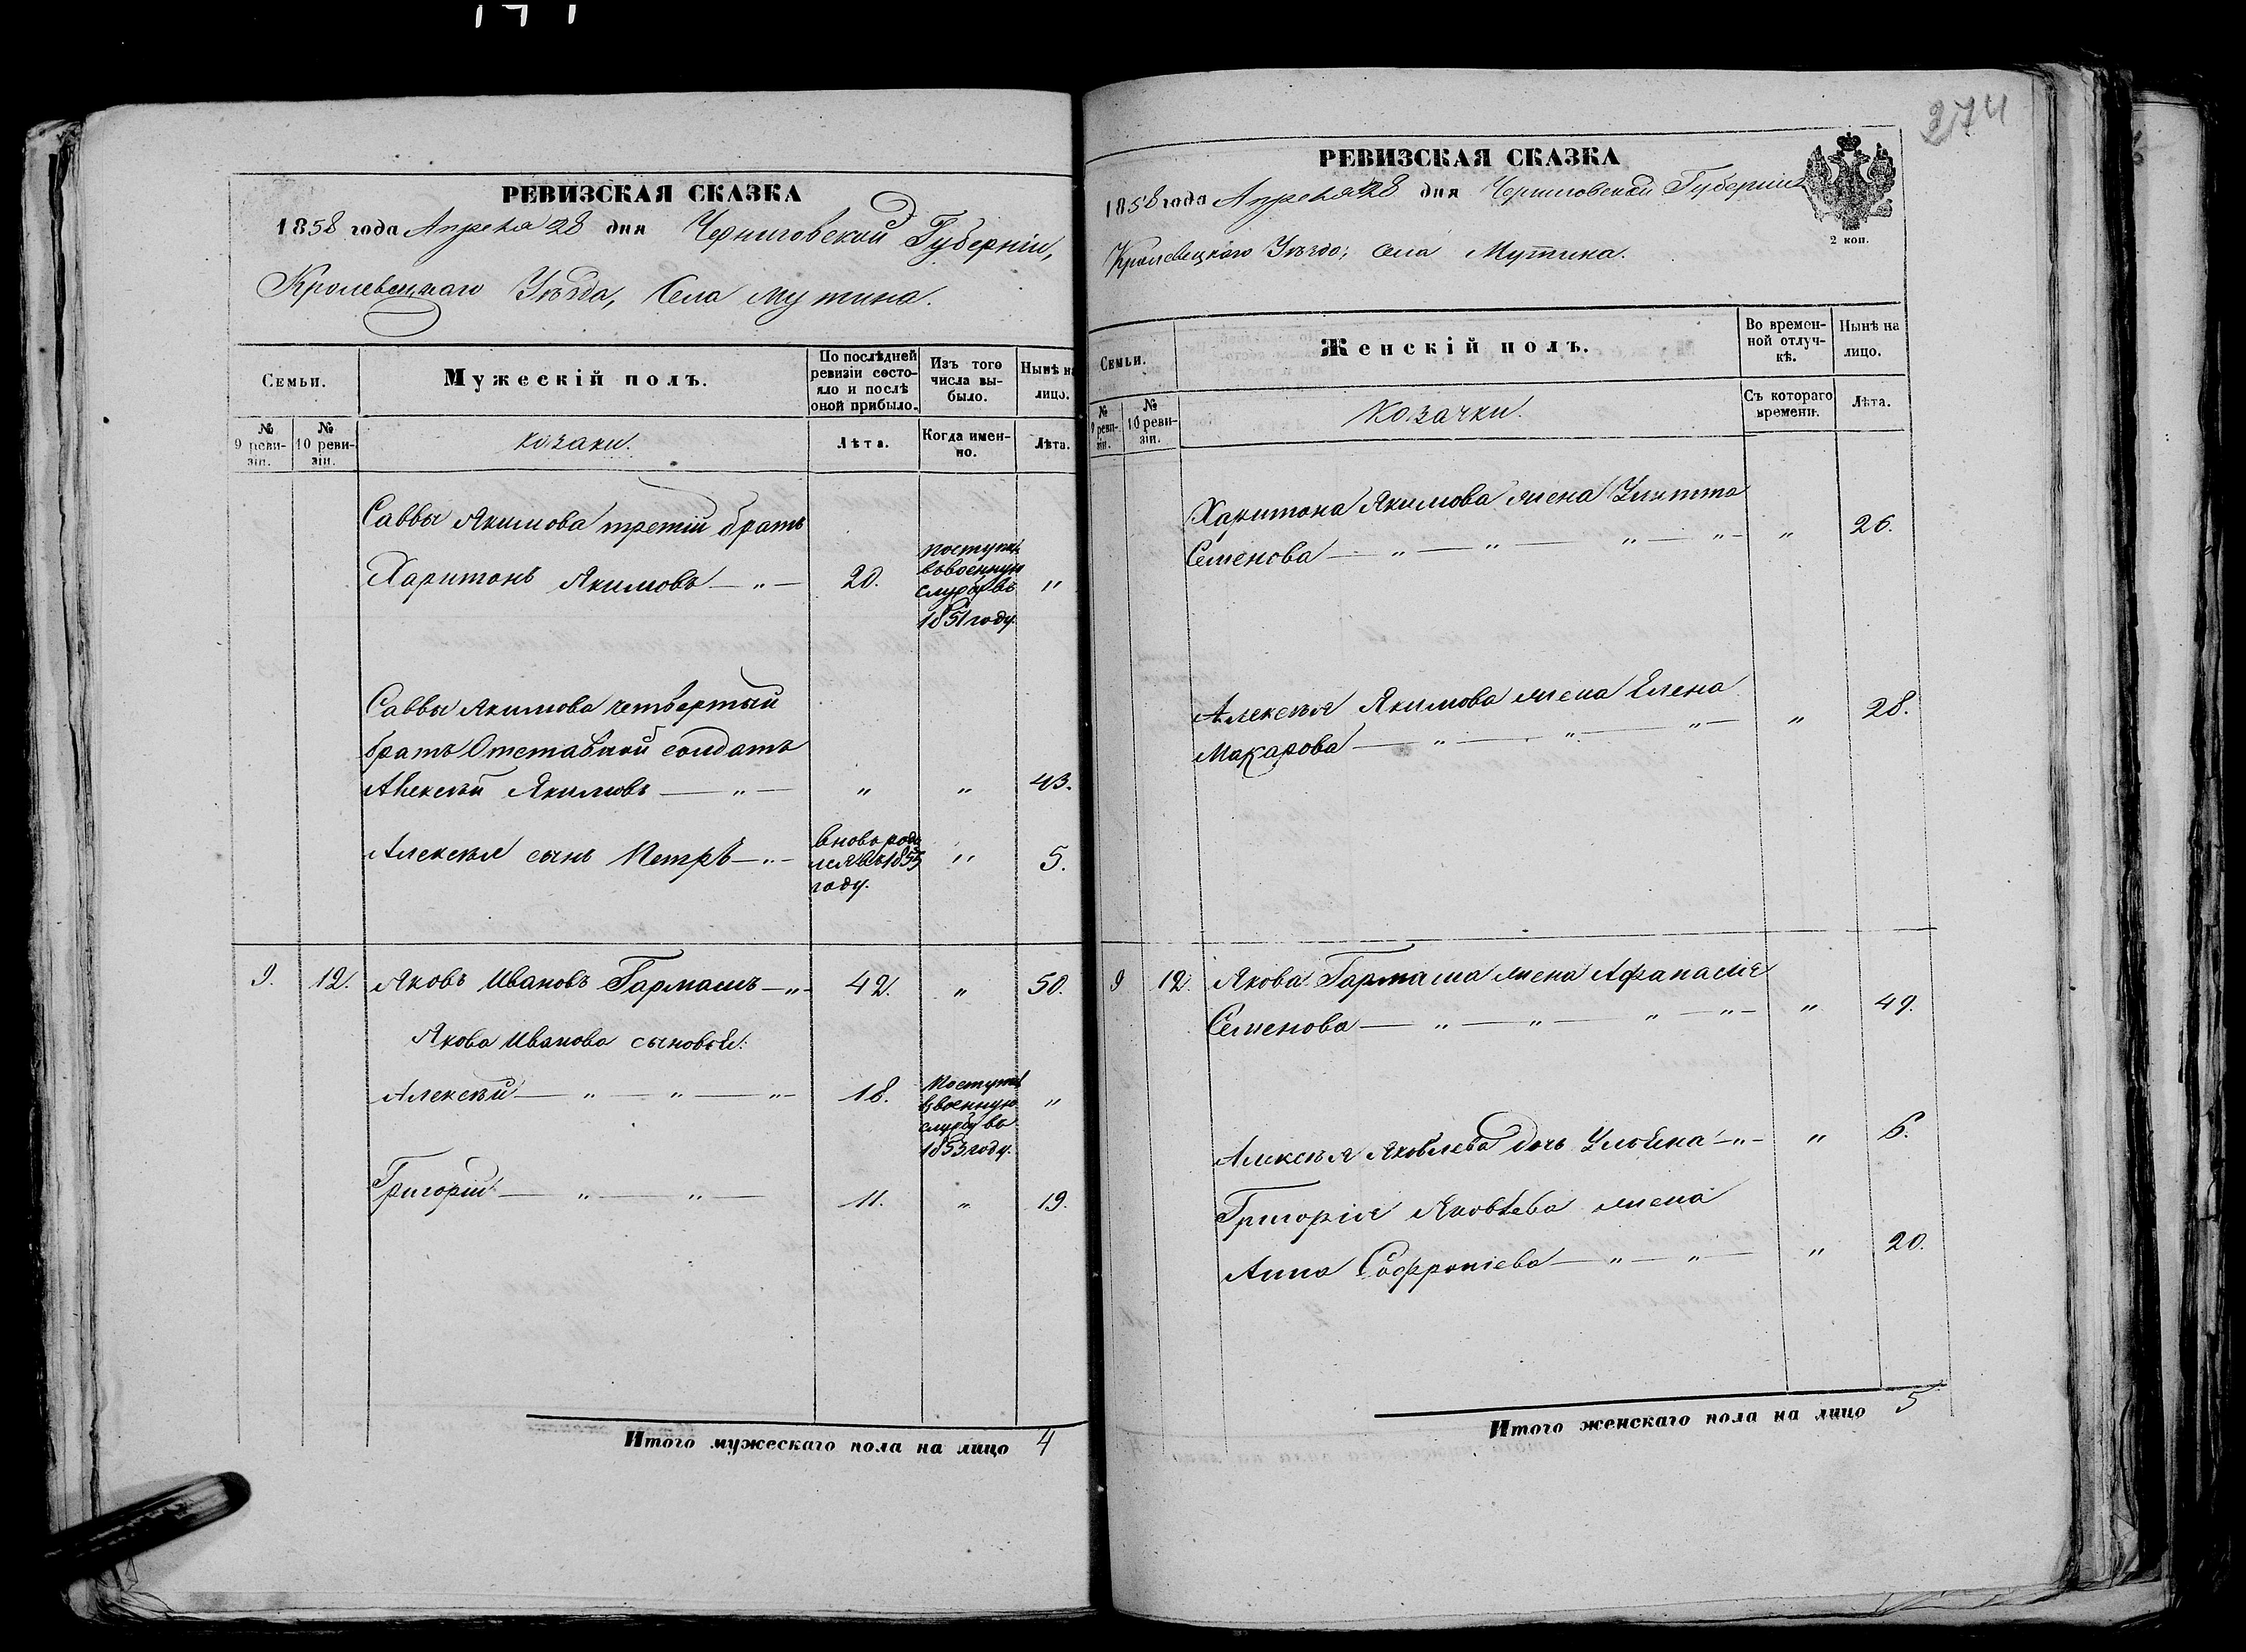 РЕВИЗСКАЯ СКАЗКА
1858 года Апреля 28 дня Черниговской Губерніи,
Кролевецкаго Уѣзда, Села Мутина.
Семьи.
Мужескій полъ.
По послѣдней ревизіи состояло и послѣ оной прибыло.
Изъ того числа выбыло.
Нынѣ на лицо.
№ 9 ревизіи.
№ 10 ревизіи.
козаки.
Лѣта.
Когда именно.
Лѣта.
Саввы Якимова третій братъ
Харитонъ Якимовъ — „ — 20. поступилъ въ военную службу въ 1851 году. „
Саввы Якимова четвертый
братъ Отставной солдатъ
Алексѣй Якимовъ — „ — „ „ 43.
Алексѣя сынъ Петръ — „ — вновь родился въ 1853 году. „ 5.
9. 12. Яковъ Ивановъ Гармашъ — „ — 42. „ 50.
Якова Иванова сыновья:
Алексѣй — „ — „ — „ — 18. Поступилъ въ военную службу въ 1853 году. „
Григорій — „ — „ — 11. „ 19.
Итого мужескаго пола на лицо 4
274
РЕВИЗСКАЯ СКАЗКА
1858 года Апреля 28 дня Черниговской Губерніи
2 коп.
Кролевецкаго Уѣзда, села Мутина.
Семьи.
Женскій полъ.
Во временной отлучкѣ.
Нынѣ на лицо.
№ 9 ревизіи.
№ 10 ревизіи.
Козачки.
Съ котораго времени.
Лѣта.
Харитона Якимова жена Улитта
Семенова — „ — „ — „ — „ — „ 26.
Алексѣя Якимова жена Елена
Макарова — „ — „ — „ — „ 28.
9 12. Якова Гармаша жена Афанасія
Семенова — „ — „ — „ — „ — „ 49.
Алексѣя Яковлева дочь — „ — „ 6.
Григорія Яковлева жена
Анна Софроніева — „ — „ — „ 20.
Итого женскаго пола на лицо 5